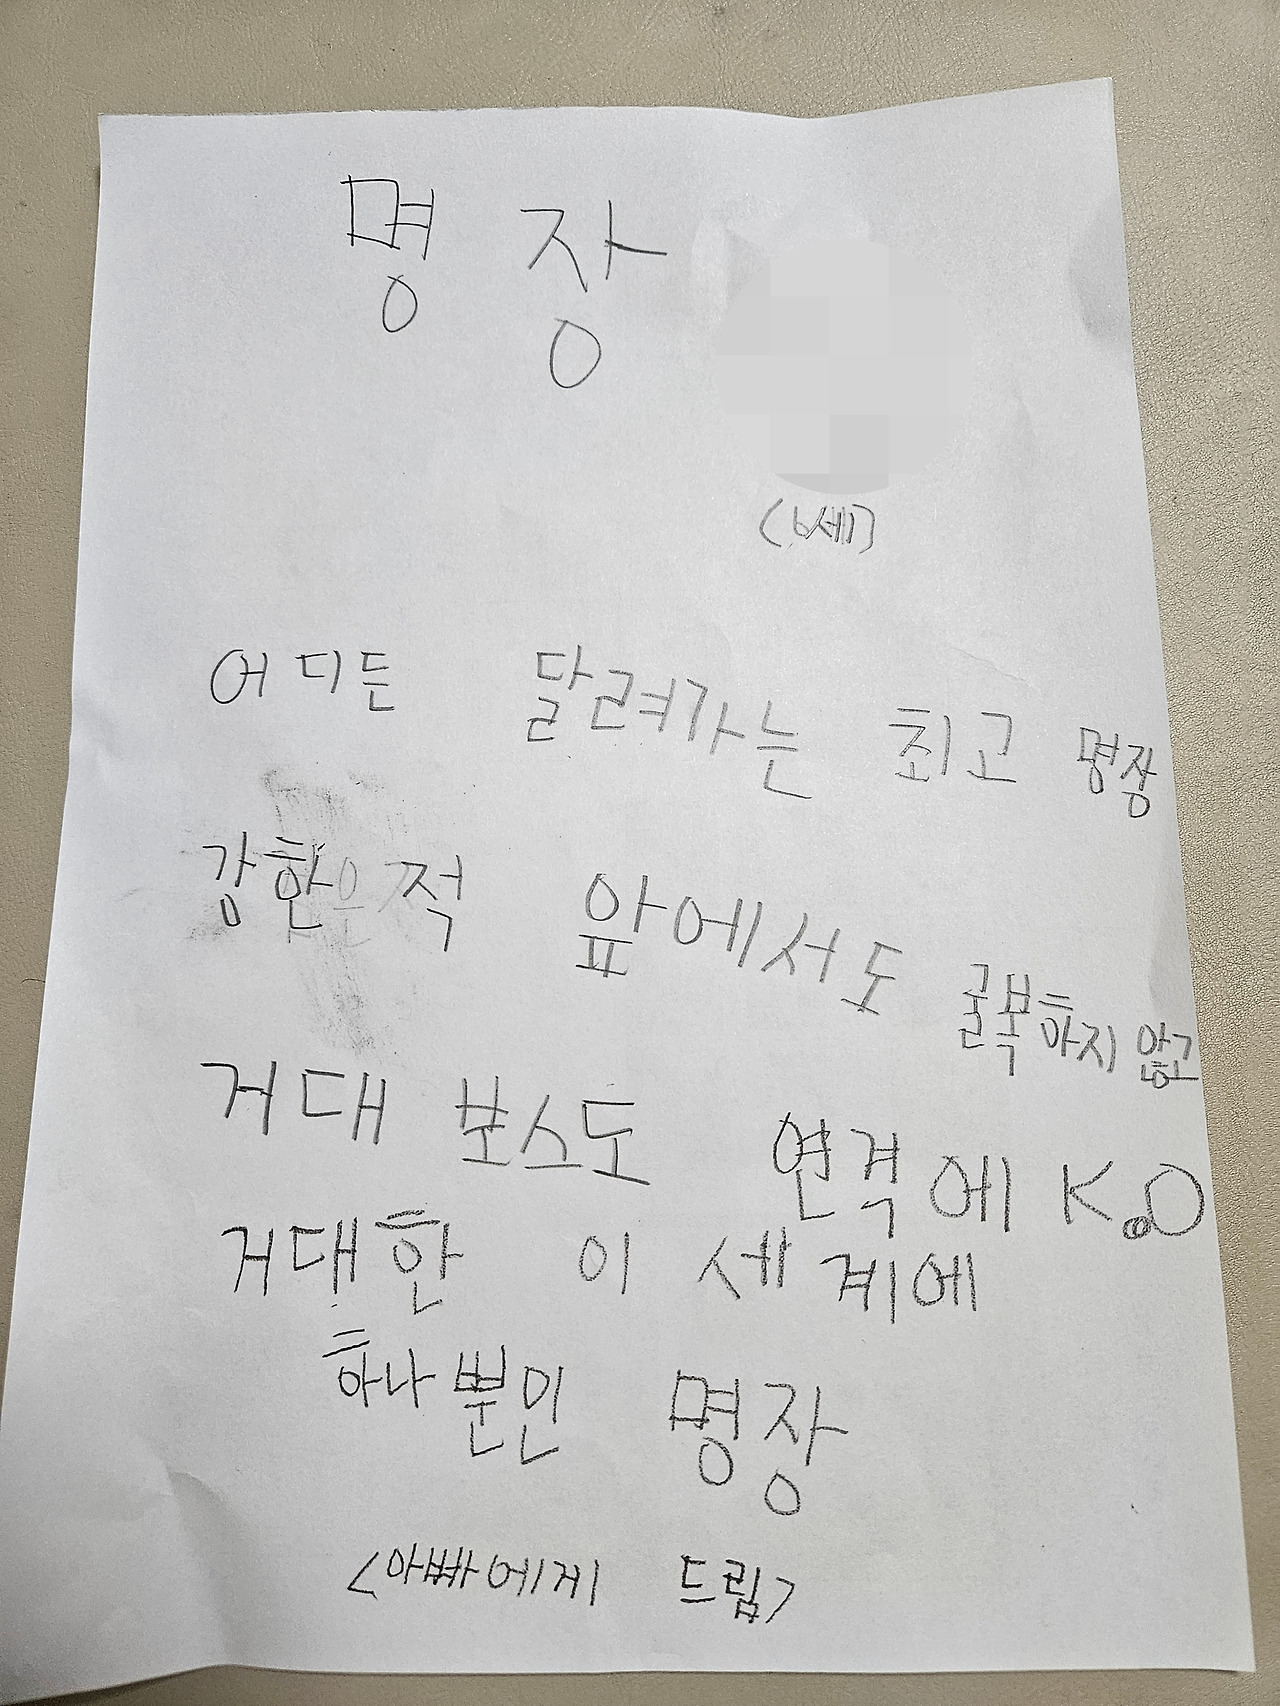 명장
(6세)
어디든 달려가는 최고 명장
강한 적 앞에서도 굴복하지 않고
거대 보스도 연격에 K.O
거대한 이 세계에
하나뿐인 명장
<아빠에게 드림>